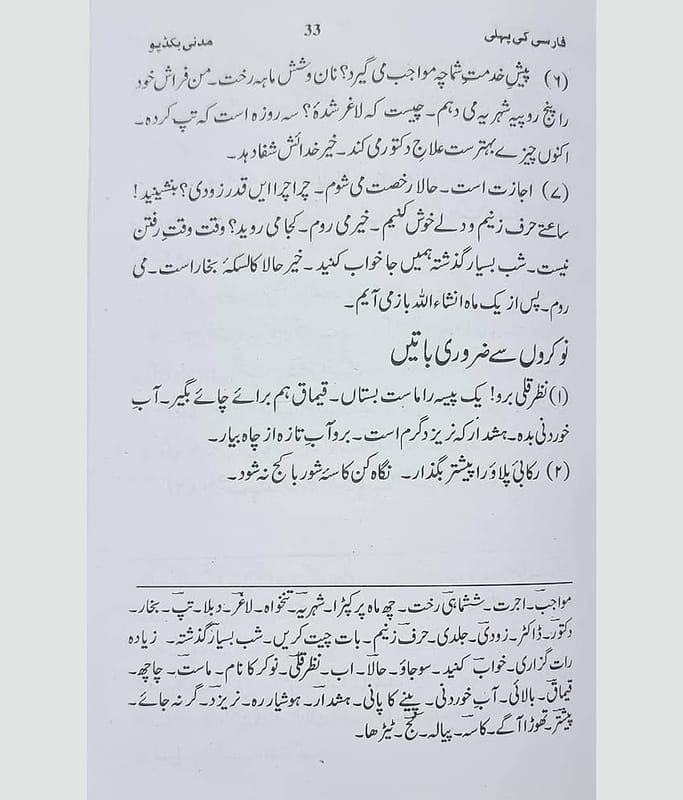 فارسی کی پہلی 33 مدنی بکڈپو
(۶) پیشِ خدمتِ شما چہ مواجب می گیرد؟ نان و شش ماہہ رخت۔ من فراش خود
را پنج روپیہ شہریہ می دہم۔ چیست کہ لاغر شدۂ؟ سہ روزہ است کہ تپ کردہ۔
اکنوں چیزے بہترست علاجِ دکتور می کند۔ خیر خدائش شفا دہد۔
(۷) اجازت است۔ حالا رخصت می شوم۔ چرا چرا ایں قدر زودی؟ بنشینید!
ساعتے حرف زنیم و دلے خوش کنیم۔ خیر می روم۔ کجا می روید؟ وقت وقتِ رفتن
نیست۔ شب بسیار گذشتہ ہمیں جا خواب کنید۔ خیر حالا کالسکۂ بخار است۔ می
روم۔ پس از یک ماہ انشاء اللہ باز می آیم۔
نوکروں سے ضروری باتیں
(۱) نظر قلی برو! یک پیسہ را ماست بستاں۔ قیماق ہم برائے چائے بگیر۔ آبِ
خوردنی بدہ۔ ہشدار کہ نریزد گرم است۔ برو آبِ تازہ از چاہ بیار۔
(۲) رکابیٔ پلاؤ را پیشتر بگذار۔ نگاہ کن کاسۂ شوربا کج نہ شود۔
مواجب۔ اجرت۔ ششماہی رخت۔ چھ ماہ پر کپڑا۔ شہریہ۔ تنخواہ۔ لاغر۔ دبلا۔ تپ۔ بخار۔
دکتور۔ ڈاکٹر۔ زودی۔ جلدی۔ حرف زنیم۔ بات چیت کریں۔ شب بسیار گذشتہ۔ زیادہ
رات گزاری۔ خواب کنید۔ سو جاؤ۔ حالا۔ اب۔ نظر قلی۔ نوکر کا نام۔ ماست۔ چاچھ۔
قیماق۔ بالائی۔ آب خوردنی۔ پینے کا پانی۔ ہشدار۔ ہوشیار رہ۔ نریزد۔ گر نہ جائے۔
پیشتر۔ تھوڑا آگے۔ کاسہ۔ پیالہ۔ کج۔ ٹیڑھا۔